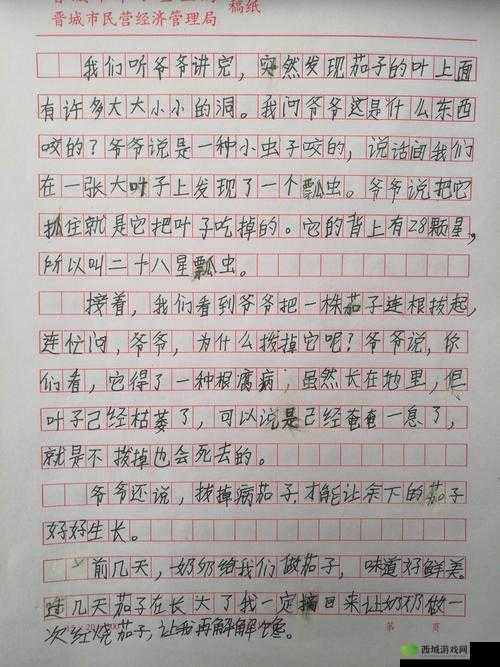 晋城市民营经济管理局 稿纸
我们听爷爷讲完，突然发现茄子的叶上面
有许多大大小小的洞。我问爷爷这是什么东西
咬的？爷爷说是一种小虫子咬的，说话间我们
在一张大叶子上发现了一个瓢虫。爷爷说把它
抓住就是它把叶子吃掉的。它的背上有28颗星，
所以叫二十八星瓢虫。
接着，我们看到爷爷把一株茄子连根拔起，
连忙问，爷爷，为什么拨掉它呢？爷爷说，你
们看，它得了一种根腐病；虽然长在地里，但
叶子已经枯萎了，可以说是已经奄奄一息了，
就是不拨掉也会死去的。
爷爷还说，拔掉病茄子，才能让余下的茄子
好好生长。
前几天，奶奶给我们做茄子，味道好鲜美。
过几天茄子在长大了我一定摘回来让奶奶做一
次红烧茄子，让我再解解馋。
第 页
西城游戏网